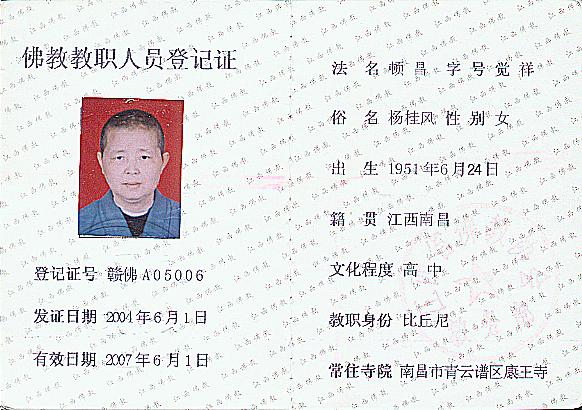 佛教教职人员登记证
登记证号 赣佛A05006
发证日期 2004年6月1日
有效日期 2007年6月1日
法名 顿昌 字号 觉祥
俗名 杨桂风 性别 女
出生 1951年6月24日
籍贯 江西南昌
文化程度 高中
教职身份 比丘尼
常住寺院 南昌市青云谱区康王寺
江西佛教